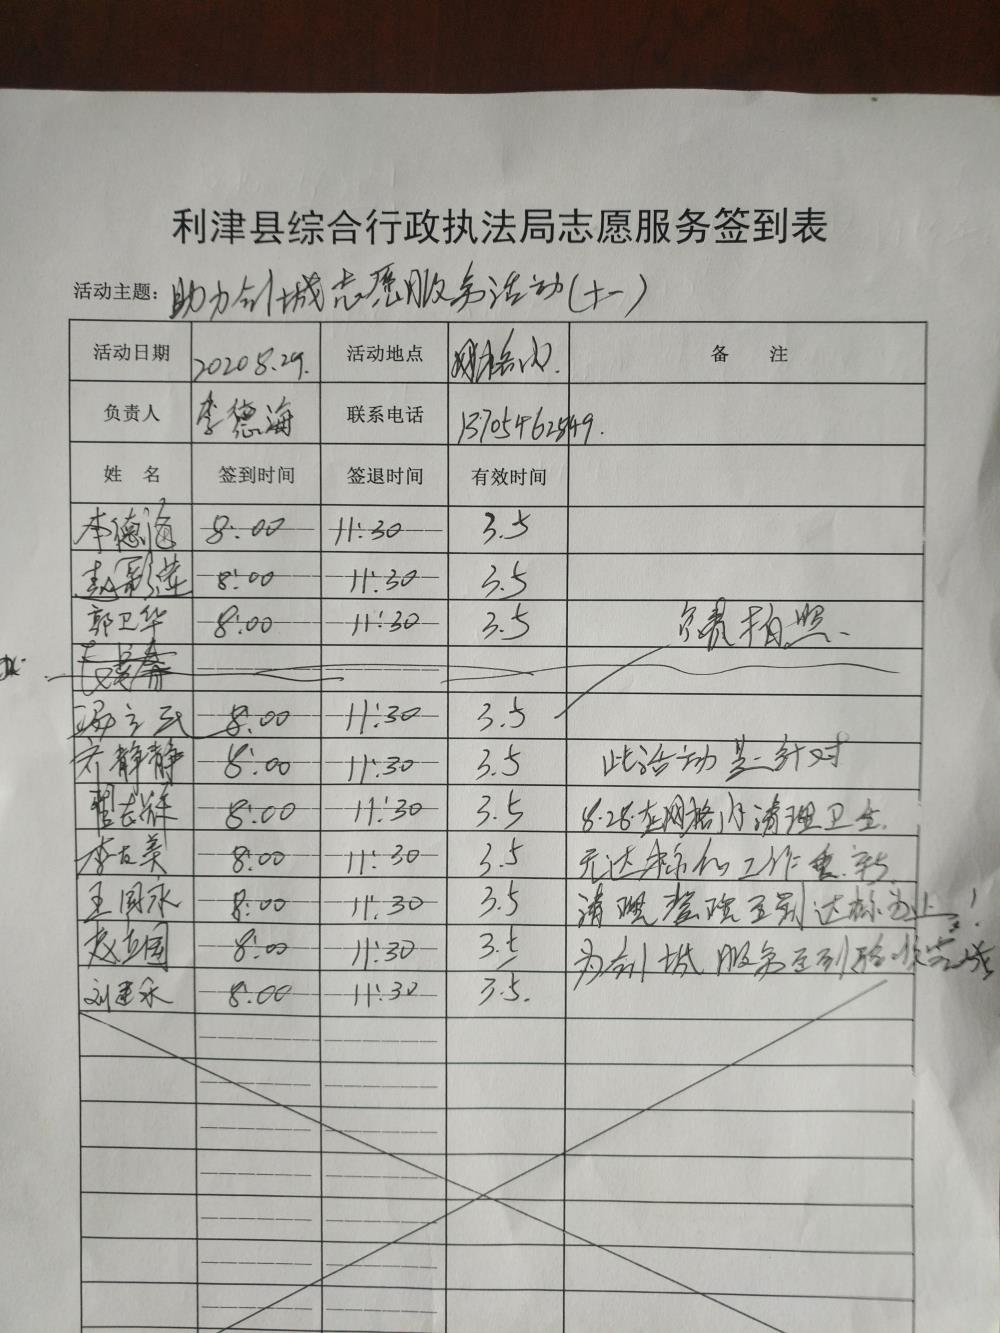 利津县综合行政执法局志愿服务签到表
活动主题: 助力创城志愿服务活动(十一)
活动日期 2020 8.29. 活动地点 网格内. 备 注
负责人 李德海 联系电话 13705462549.
姓 名 签到时间 签退时间 有效时间
李德海 8:00 11:30 3.5
赵彩莲 8:00 11:30 3.5
郭卫华 8:00 11:30 3.5 负责拍照.
8:00 11:30 3.5
齐静静 8:00 11:30 3.5 此活动是针对
8:00 11:30 3.5 8.28.在网格内清理卫生
李友美 8:00 11:30 3.5 无达标的工作重新
王国永 8:00 11:30 3.5 清理整理至到达标为止!
赵立国 8:00 11:30 3.5 为创城服务至到验收完成
刘建永 8:00 11:30 3.5.